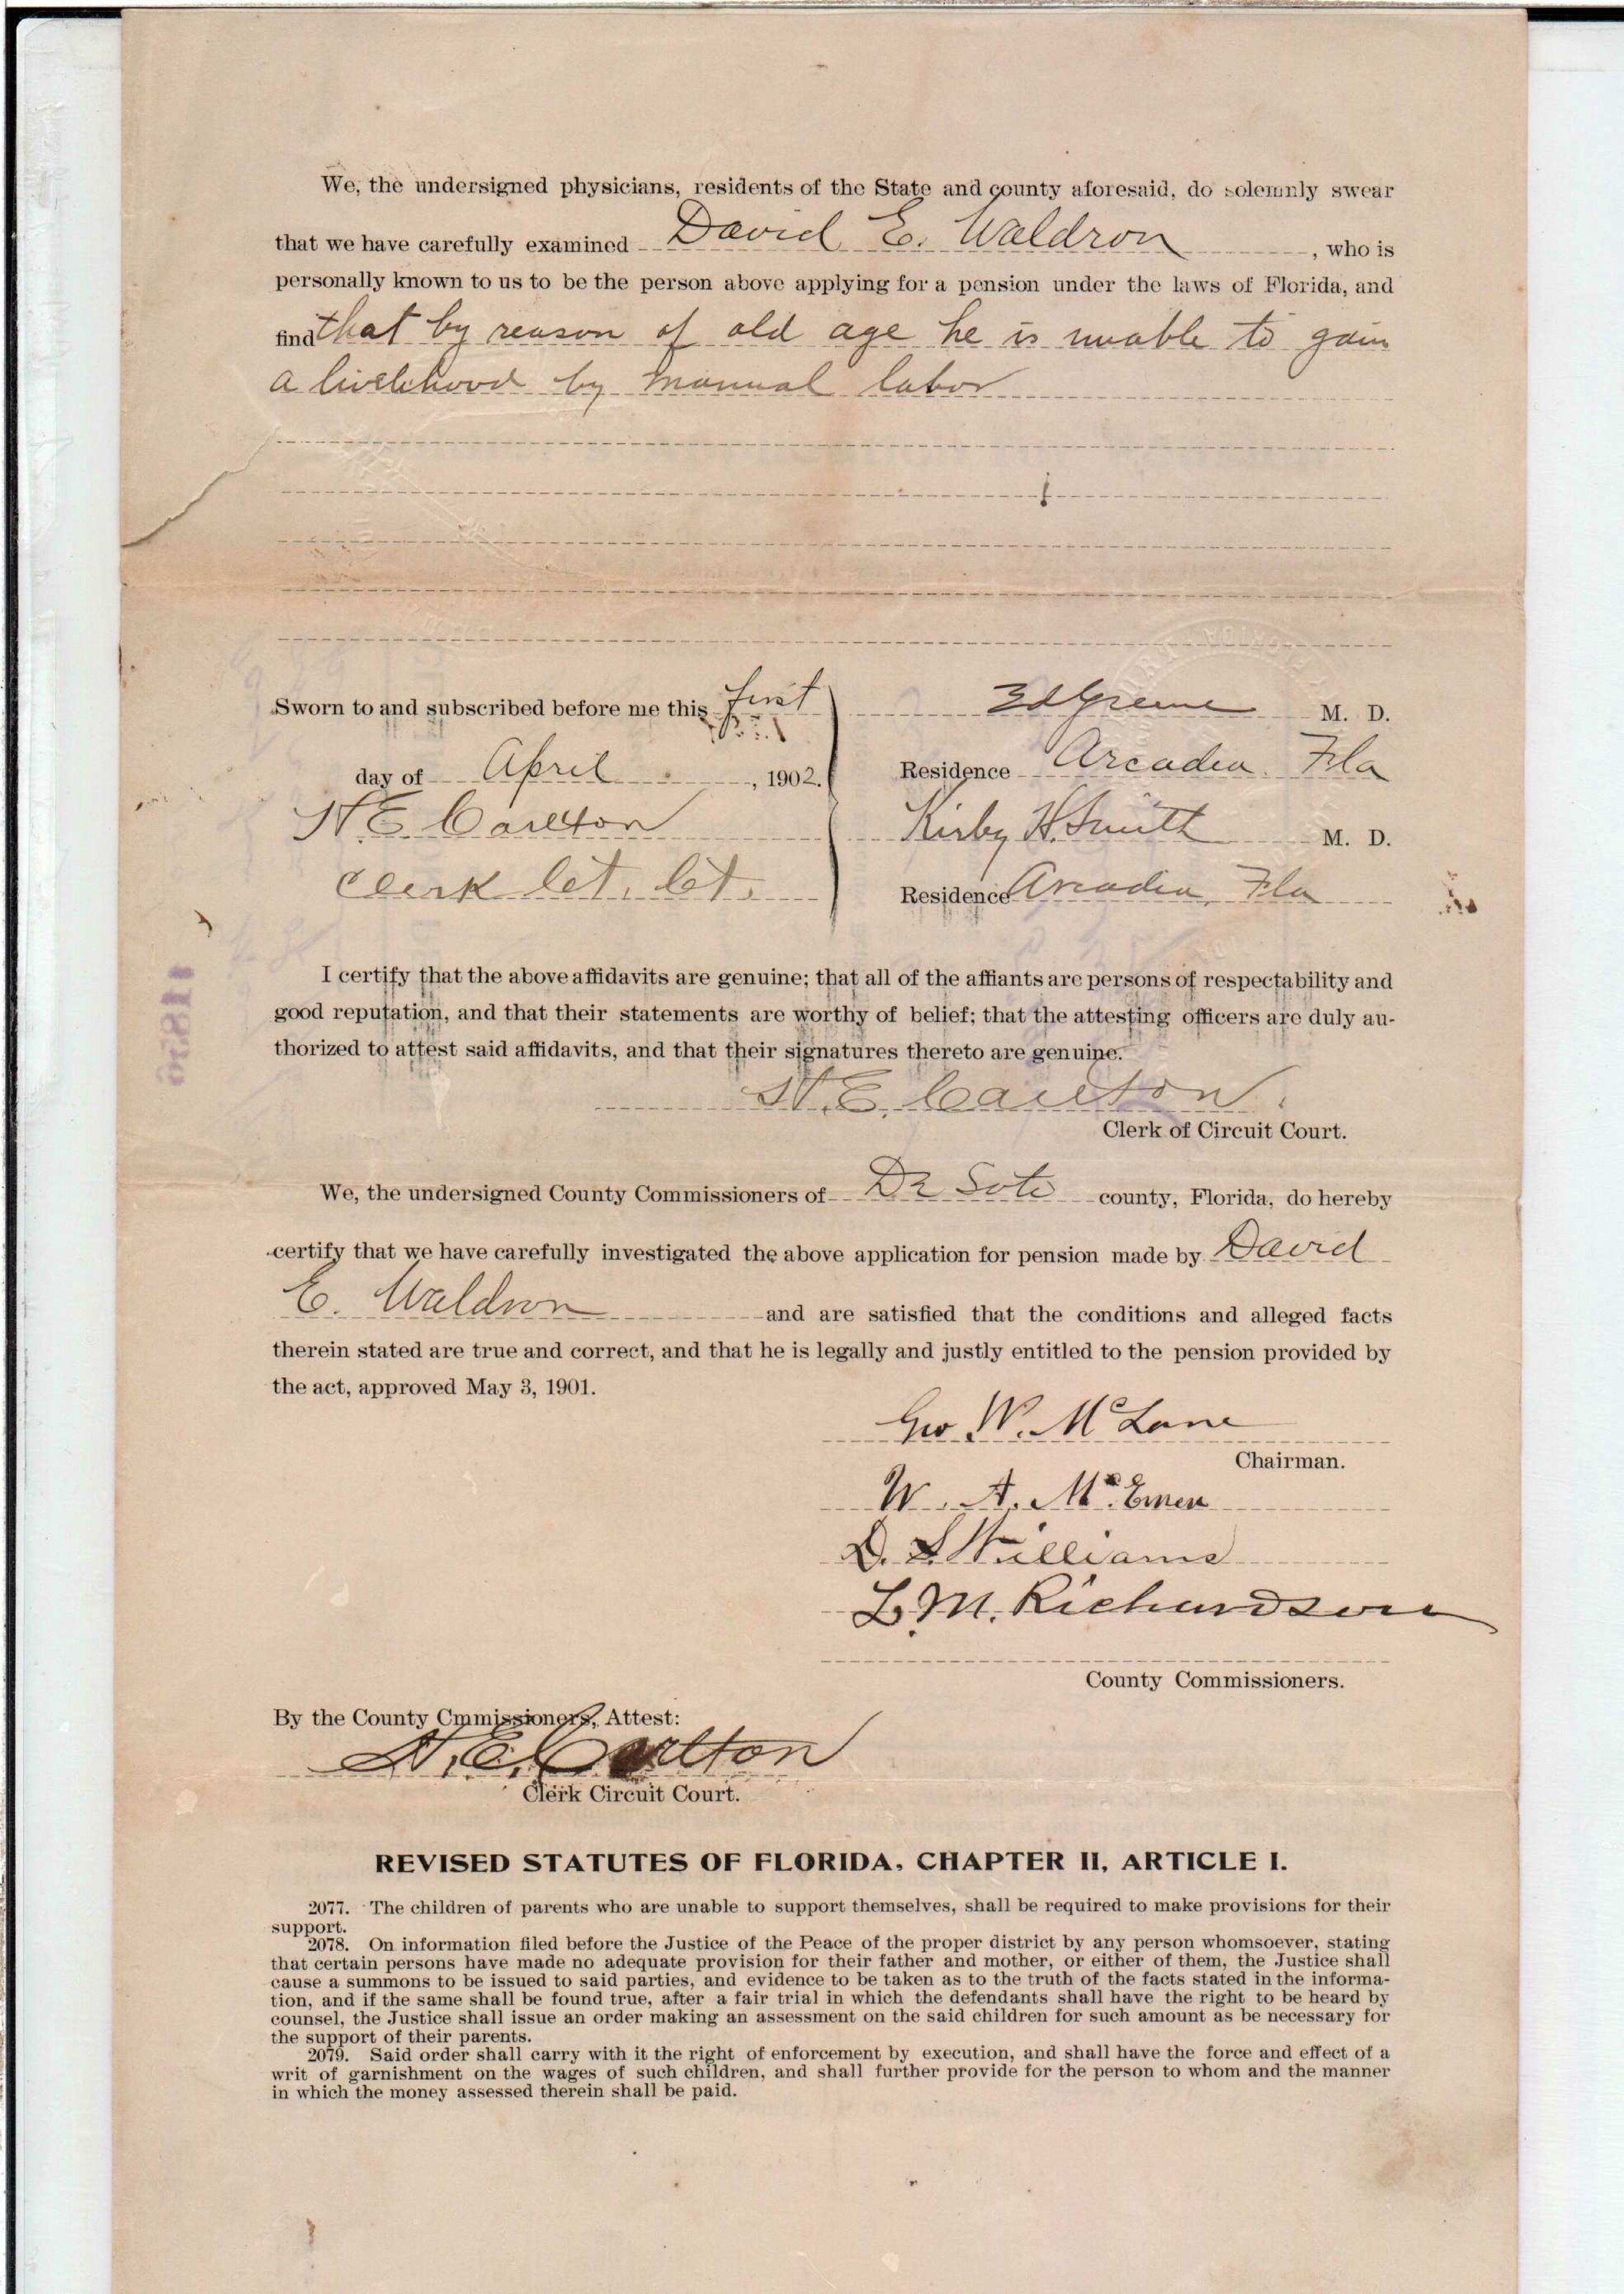 We, the undersigned physicians, residents of the State and county aforesaid, do solemnly swear
that we have carefully examined David E. Waldron, who is
personally known to us to be the person above applying for a pension under the laws of Florida, and
find that by reason of old age he is unable to gain
a livelihood by manual labor
Sworn to and subscribed before me this first
day of April, 1902.
H E Carlton
Clerk Ct. Ct.
Ed Greene M. D.
Residence Arcadia Fla
Kirby H. Smith M. D.
Residence Arcadia, Fla
I certify that the above affidavits are genuine; that all of the affiants are persons of respectability and
good reputation, and that their statements are worthy of belief; that the attesting officers are duly au-
thorized to attest said affidavits, and that their signatures thereto are genuine.
H. E. Carlton.
Clerk of Circuit Court.
We, the undersigned County Commissioners of De Soto county, Florida, do hereby
certify that we have carefully investigated the above application for pension made by David
E. Waldron and are satisfied that the conditions and alleged facts
therein stated are true and correct, and that he is legally and justly entitled to the pension provided by
the act, approved May 3, 1901.
Geo W. McLane
Chairman.
W. A. Mc
D. S. Williams
L. M. Richardson
County Commissioners.
By the County Cmmissioners, Attest:
H. E. Carlton
Clerk Circuit Court.
REVISED STATUTES OF FLORIDA, CHAPTER II, ARTICLE I.
2077. The children of parents who are unable to support themselves, shall be required to make provisions for their
support.
2078. On information filed before the Justice of the Peace of the proper district by any person whomsoever, stating
that certain persons have made no adequate provision for their father and mother, or either of them, the Justice shall
cause a summons to be issued to said parties, and evidence to be taken as to the truth of the facts stated in the informa-
tion, and if the same shall be found true, after a fair trial in which the defendants shall have the right to be heard by
counsel, the Justice shall issue an order making an assessment on the said children for such amount as be necessary for
the support of their parents.
2079. Said order shall carry with it the right of enforcement by execution, and shall have the force and effect of a
writ of garnishment on the wages of such children, and shall further provide for the person to whom and the manner
in which the money assessed therein shall be paid.